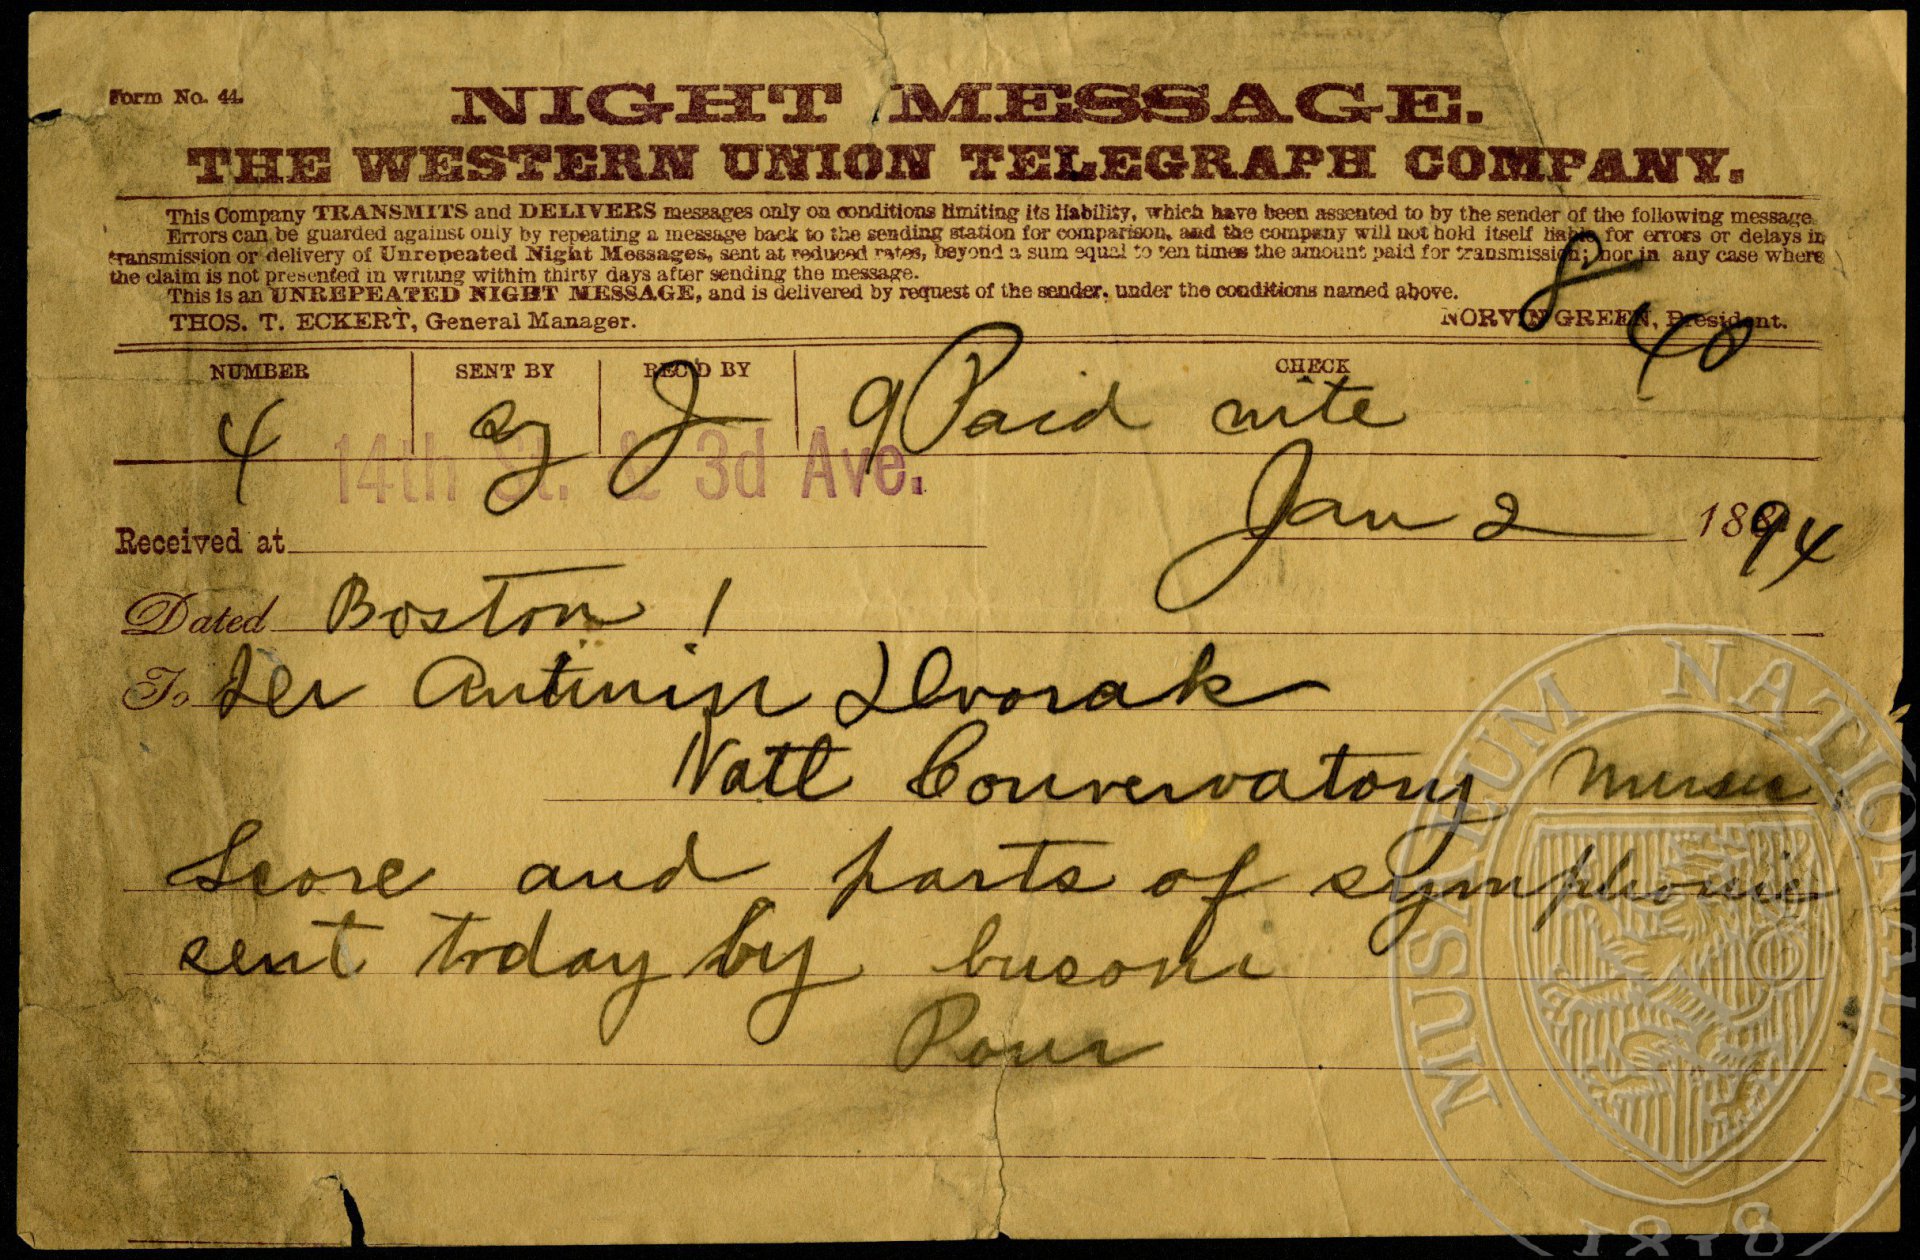 Form No. 44.
NIGHT MESSAGE.
THE WESTERN UNION TELEGRAPH COMPANY.
This Company TRANSMITS and DELIVERS messages only on conditions limiting its liability, which have been assented to by the sender of the following message.
Errors can be guarded against only by repeating a message back to the sending station for comparison, and the company will not hold itself liable for errors or delays in
transmission or delivery of Unrepeated Night Messages, sent at reduced rates, beyond a sum equal to ten times the amount paid for transmission; nor in any case where
the claim is not presented in writing within thirty days after sending the message.
This is an UNREPEATED NIGHT MESSAGE, and is delivered by request of the sender, under the conditions named above.
THOS. T. ECKERT, General Manager. NORVIN GREEN, President.
8 40
NUMBER SENT BY REC'D BY CHECK
4 J 9 Paid nite
14th St. & 3d Ave.
Received at Jan 2 1894
Dated Boston 1
To Antonin Dvorak
Natl Conservatory Music
Score and parts of symphonie
sent today by busoni
Paur
MUSAEUM NATIONALE
1818